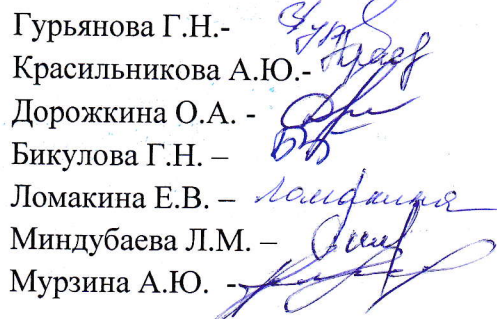 Гурьянова Г.Н.-
Красильникова А.Ю.-
Дорожкина О.А. -
Бикулова Г.Н. –
Ломакина Е.В. – Ломакина
Миндубаева Л.М. –
Мурзина А.Ю. -